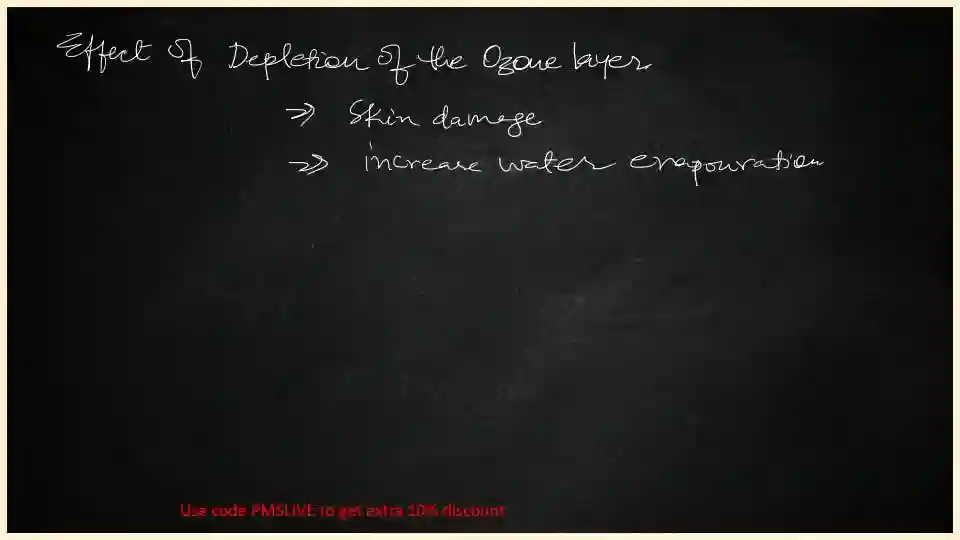 Effect of Depletion of the Ozone layer
⇒ Skin damage
⇒ increase water evapouration
Use code PMSLIVE to get extra 10% discount